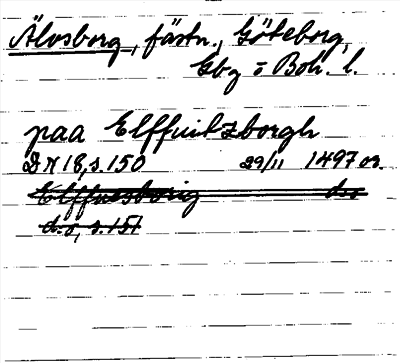 Älvsborg, fästn., Göteborg,
Gbg o Boh. l.
paa Elffuitzborgh
DN 18, s. 150 29/11 1497 or.
Elffuesborig ds
d:o, s. 151